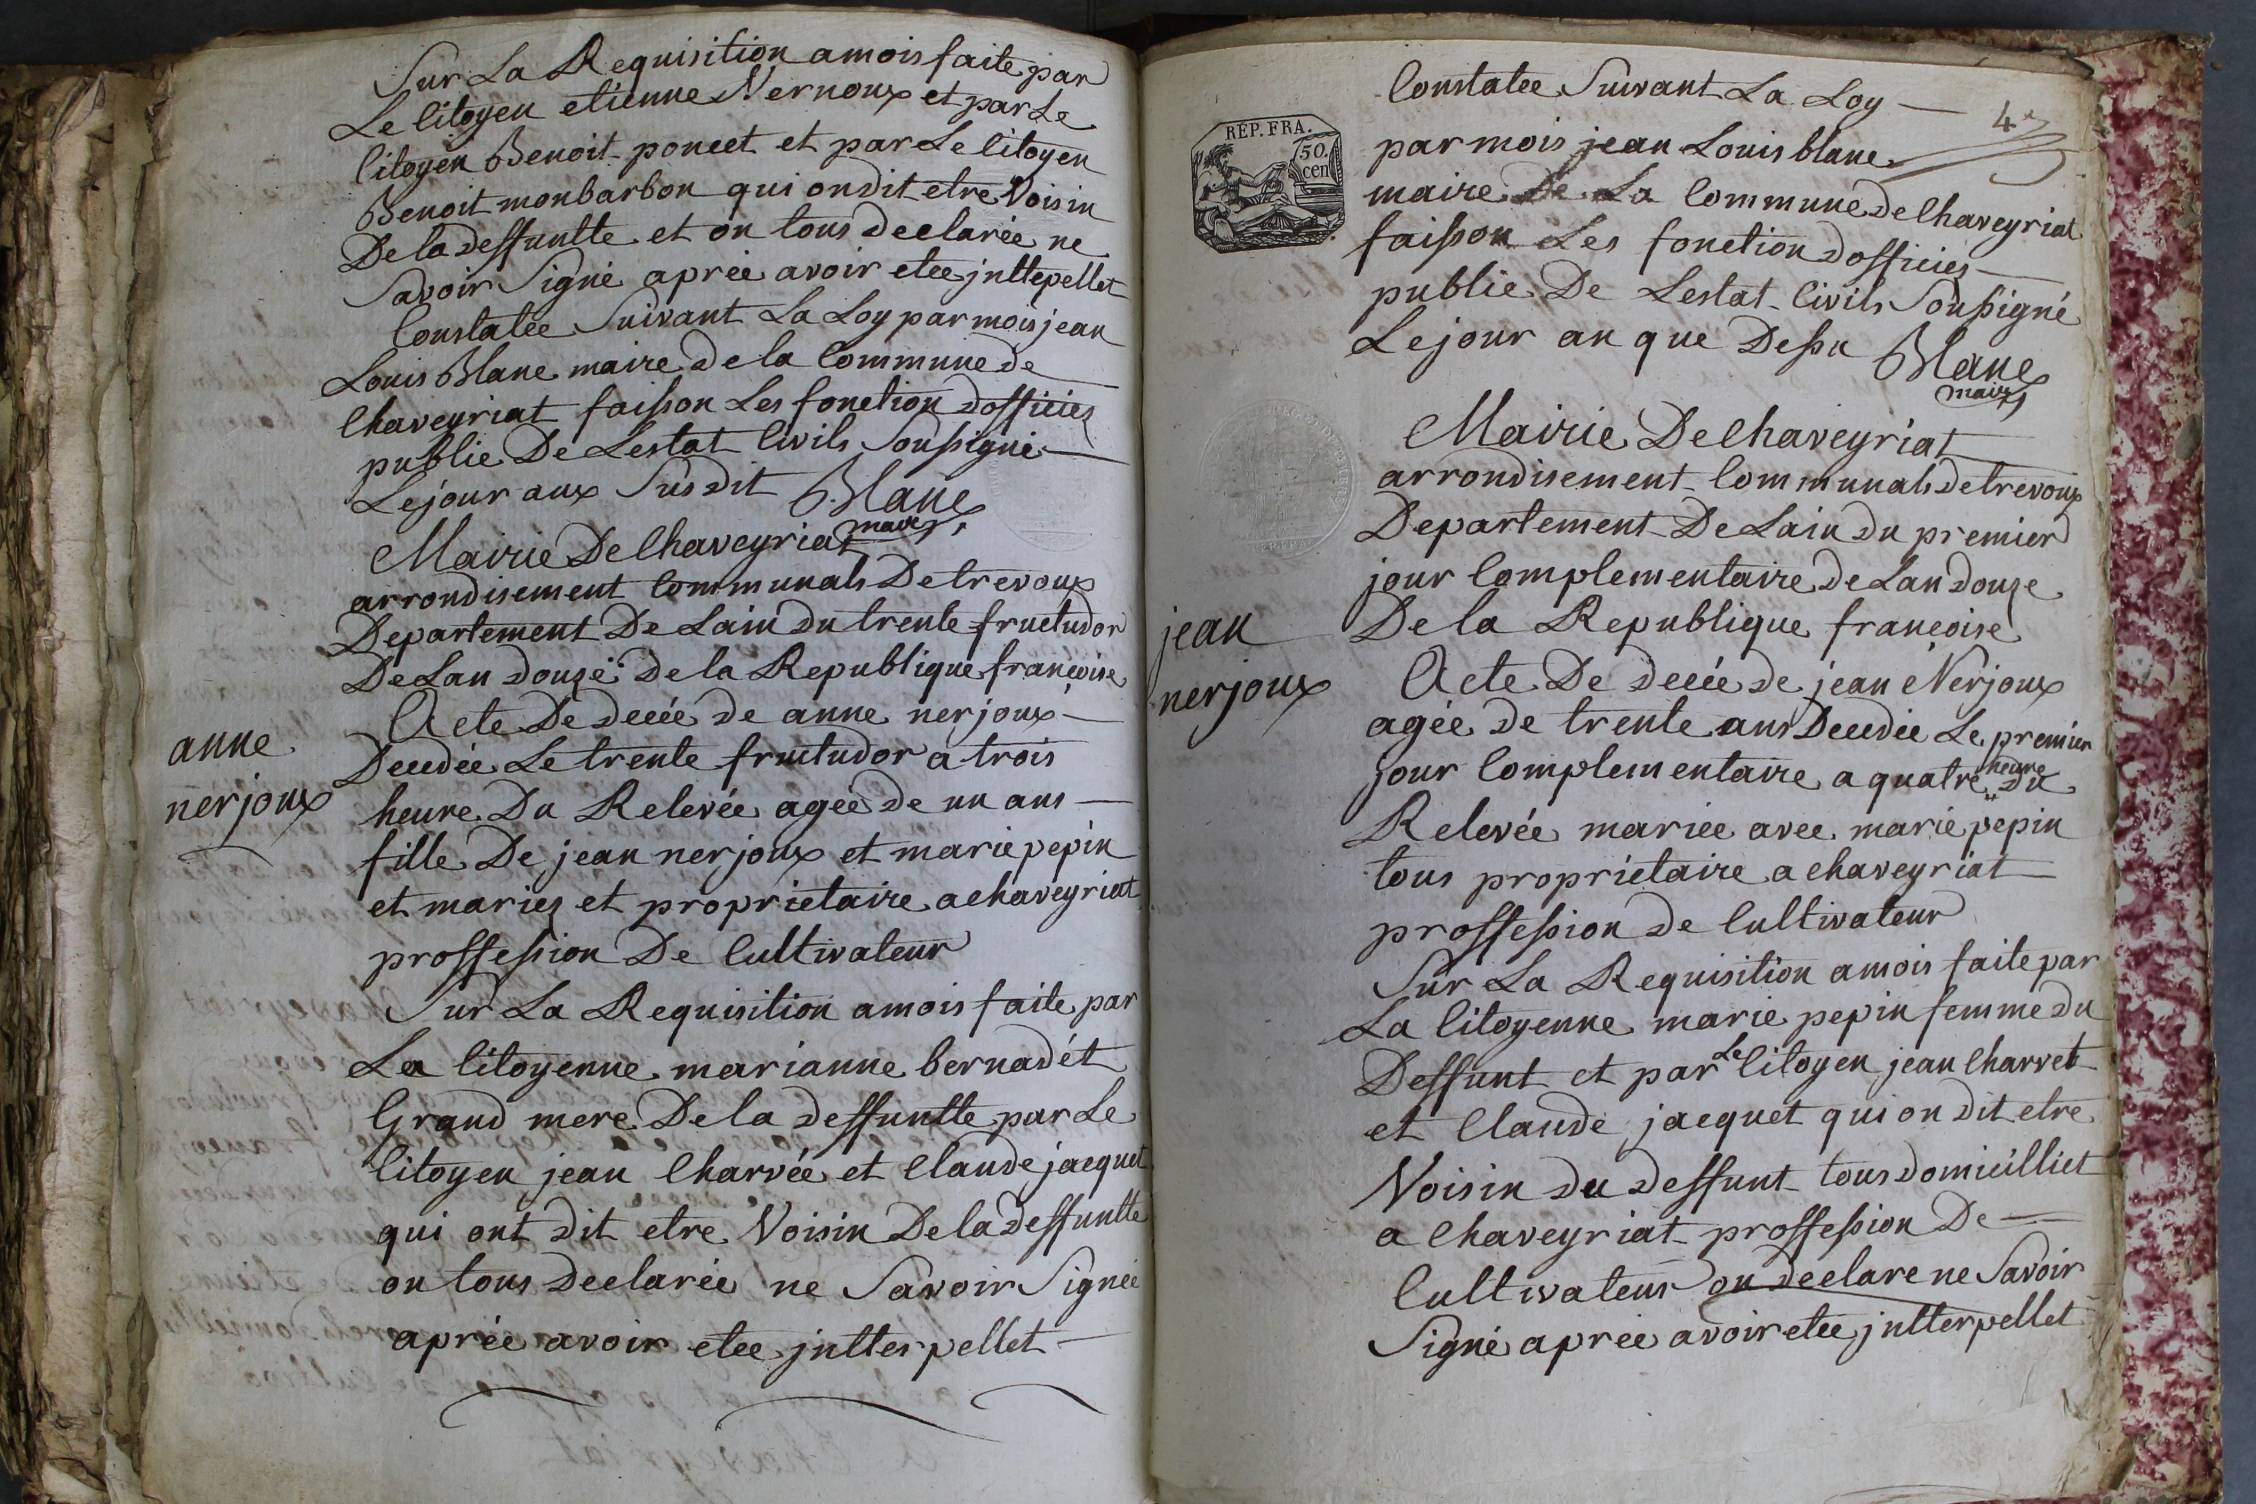 Sur La Requisition a mois faite par
Le Citoyen etienne Vernoux et par Le
Citoyen Benoit poncet et par Le Citoyen
Benoit monbarbon qui on dit etre Voisin
De la deffuntte et on tous declarée ne
Savoir Signé aprée avoir etee jnttepellet
Constatée Suivant La Loy par mois jean
Louis Blanc maire de la Commune de
Chaveyriat faisson Les fonction dofficies
public De Lestat Civils Soussigné
Le jour aux Susdit Blanc
maire
Mairie De Chaveyriat
arrondisement Communals De trevoux
Departement De Lain du trente fructudor
De Lan douze de la Republique francoise
anne
nerjoux
Acte De decée de anne nerjoux
Decedée Le trente fructudor a trois
heure Du Relevée agée de un ans
fille De jean nerjoux et marie pepin
et maries et proprietaire a chaveyriat
proffession De Cultivateur
Sur La Requisition a mois faite par
La Citoyenne marianne bernadét
Grand mere De la deffuntte par Le
Citoyen jean Charvée et Claude jacquet
qui ont dit etre Voisin De la deffuntte
on tous declarée ne Savoir Signée
aprée avoir etee jntterpellet
4
REP. FRA.
50.
cen
Constatee Suivant La Loy
par mois jean Louis blanc
maire De La Commune de Chaveyriat
faisson Les fonction dofficies
public De Lestat Civils Soussigné
Le jour an que Dessu Blanc
maire
Mairie De Chaveyriat
arrondisement Communals de trevoux
Departement De Lain du premier
jour Complementaire de Lan douze
De la Republique francoise
jean
nerjoux
Acte De decée de jean Nerjoux
agée de trente ans Decedée Le premier
jour Complementaire a quatre heure Du
Relevée mariée avec marie pepin
tous proprietaire a chaveyriat
proffession de Cultivateur
Sur La Requisition a mois faite par
La Citoyenne marie pepin femme du
Deffunt et par Le Citoyen jean Charvet
et Claude jacquet qui on dit etre
Voisin du deffunt tous domicilliet
a Chaveyriat proffession De
Cultivateur on declare ne Savoir
Signé aprée avoir etee jntterpellet